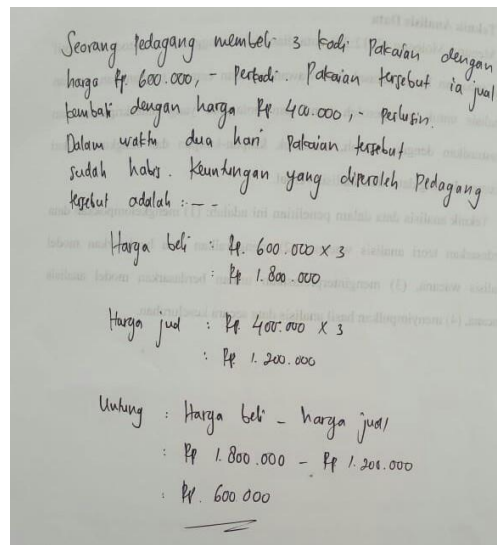 Seorang Pedagang membeli 3 kodi Pakaian dengan
harga Rp. 600.000,- Perkodi. Pakaian tersebut ia jual
kembali dengan harga Rp 400.000,- Perlusin.
Dalam waktu dua hari Pakaian tersebut
sudah habis. Keuntungan yang diperoleh Pedagang
tersebut adalah : ---
Harga beli : Rp. 600.000 X 3
: Rp 1.800.000
Harga jual : Rp. 400.000 X 3
: Rp. 1.200.000
Untung : Harga beli - harga jual
: Rp 1.800.000 - Rp 1.200.000
: Rp. 600 000